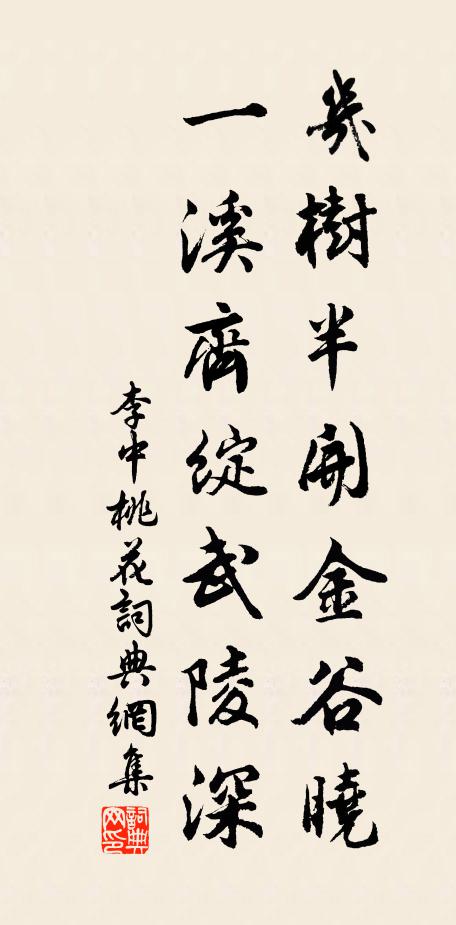 幾樹半開金谷曉
一溪齊綻武陵深
李中桃花詞典網集
詞典网印